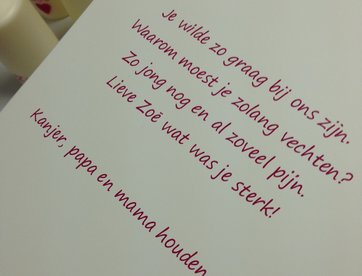 Je wilde zo graag bij ons zijn.
Waarom moest je zolang vechten?
Zo jong nog en al zoveel pijn.
Lieve Zoë wat was je sterk!
Kanjer, papa en mama houden